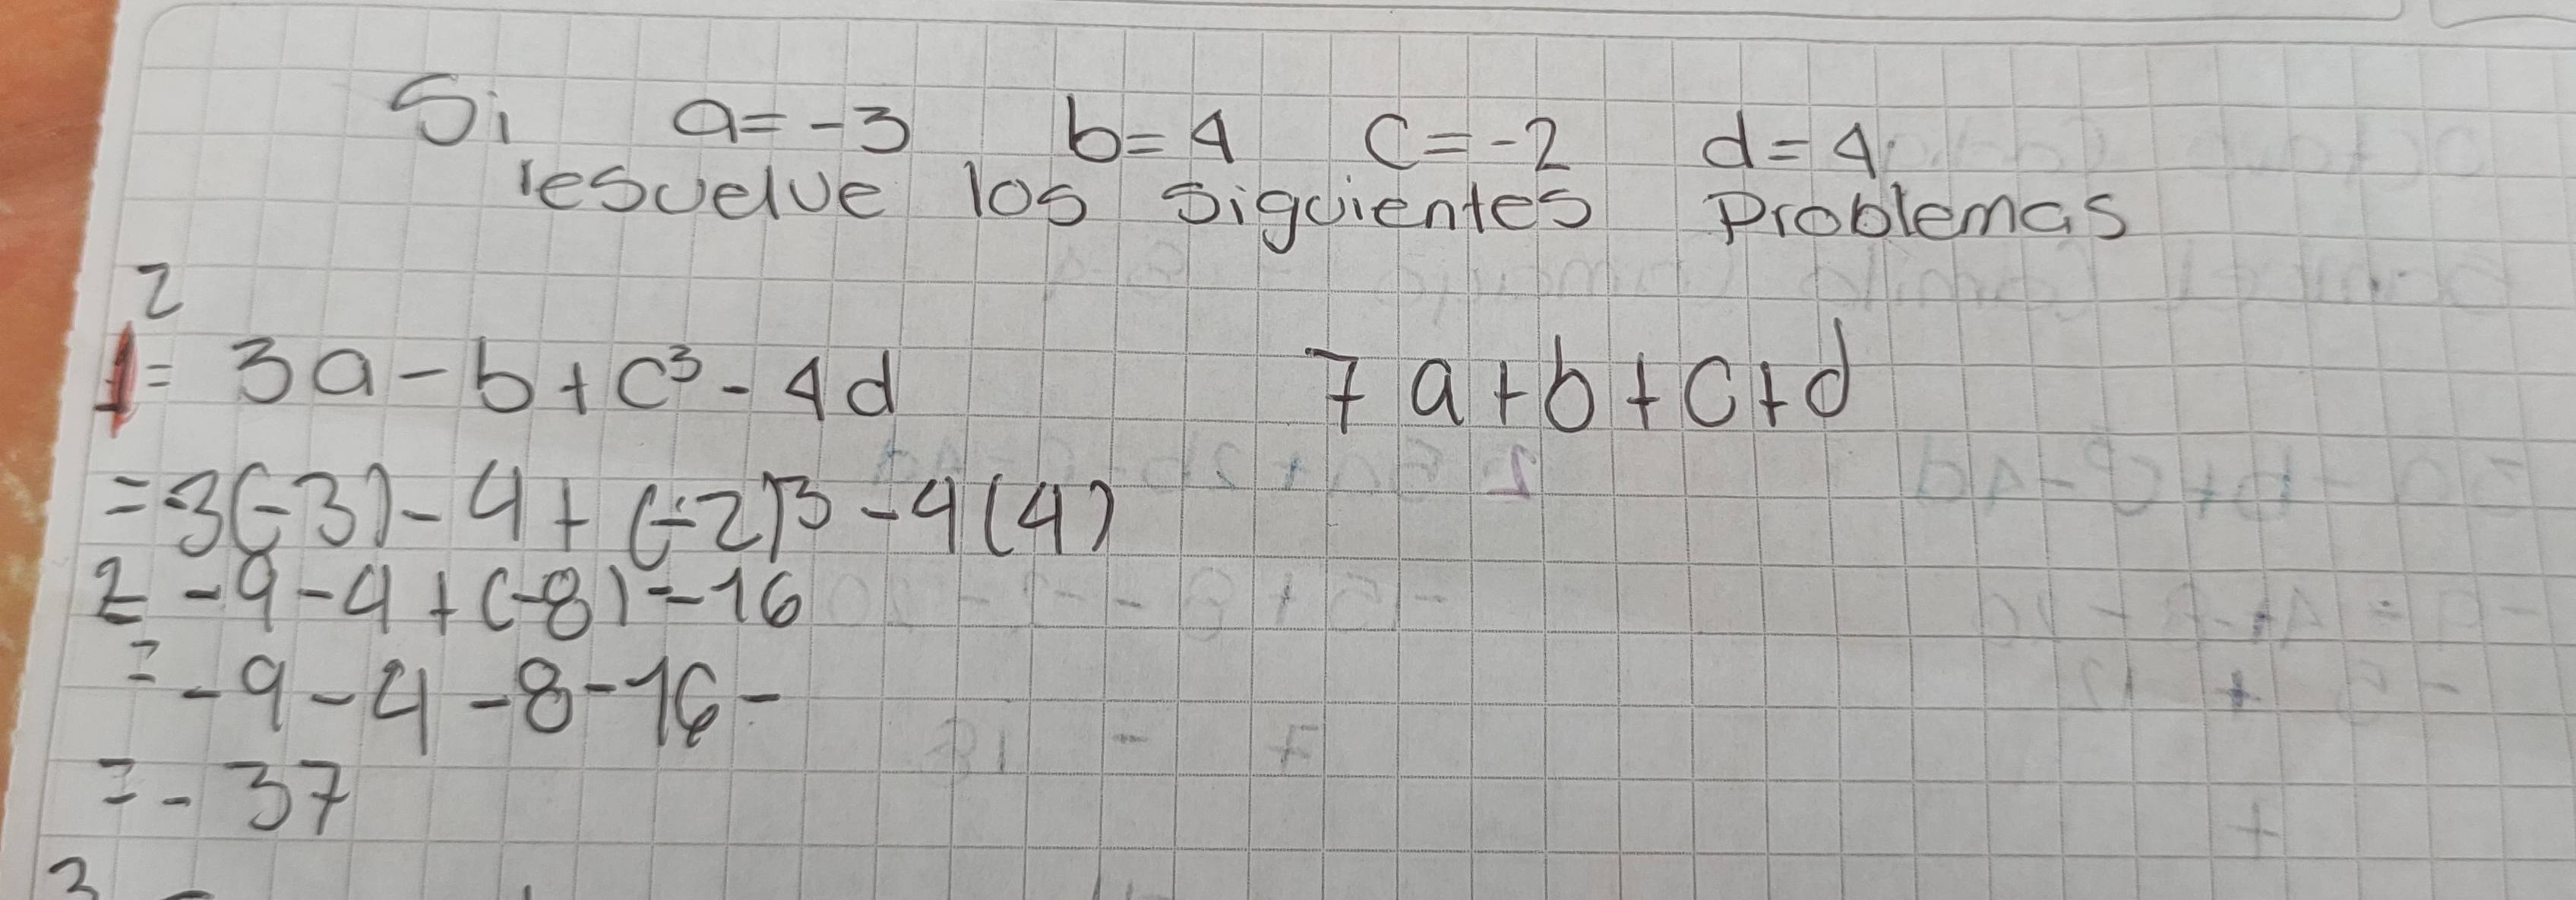 Si a=-3 b=4 c=-2 d=4
resuelve los siguientes Problemas
2
1= 3a-b+c³-4d 7a+b+c+d
=3(-3)-4+(-2)³-4(4)
= -9-4+(-8)-16
= -9-4-8-16-
=-37
3